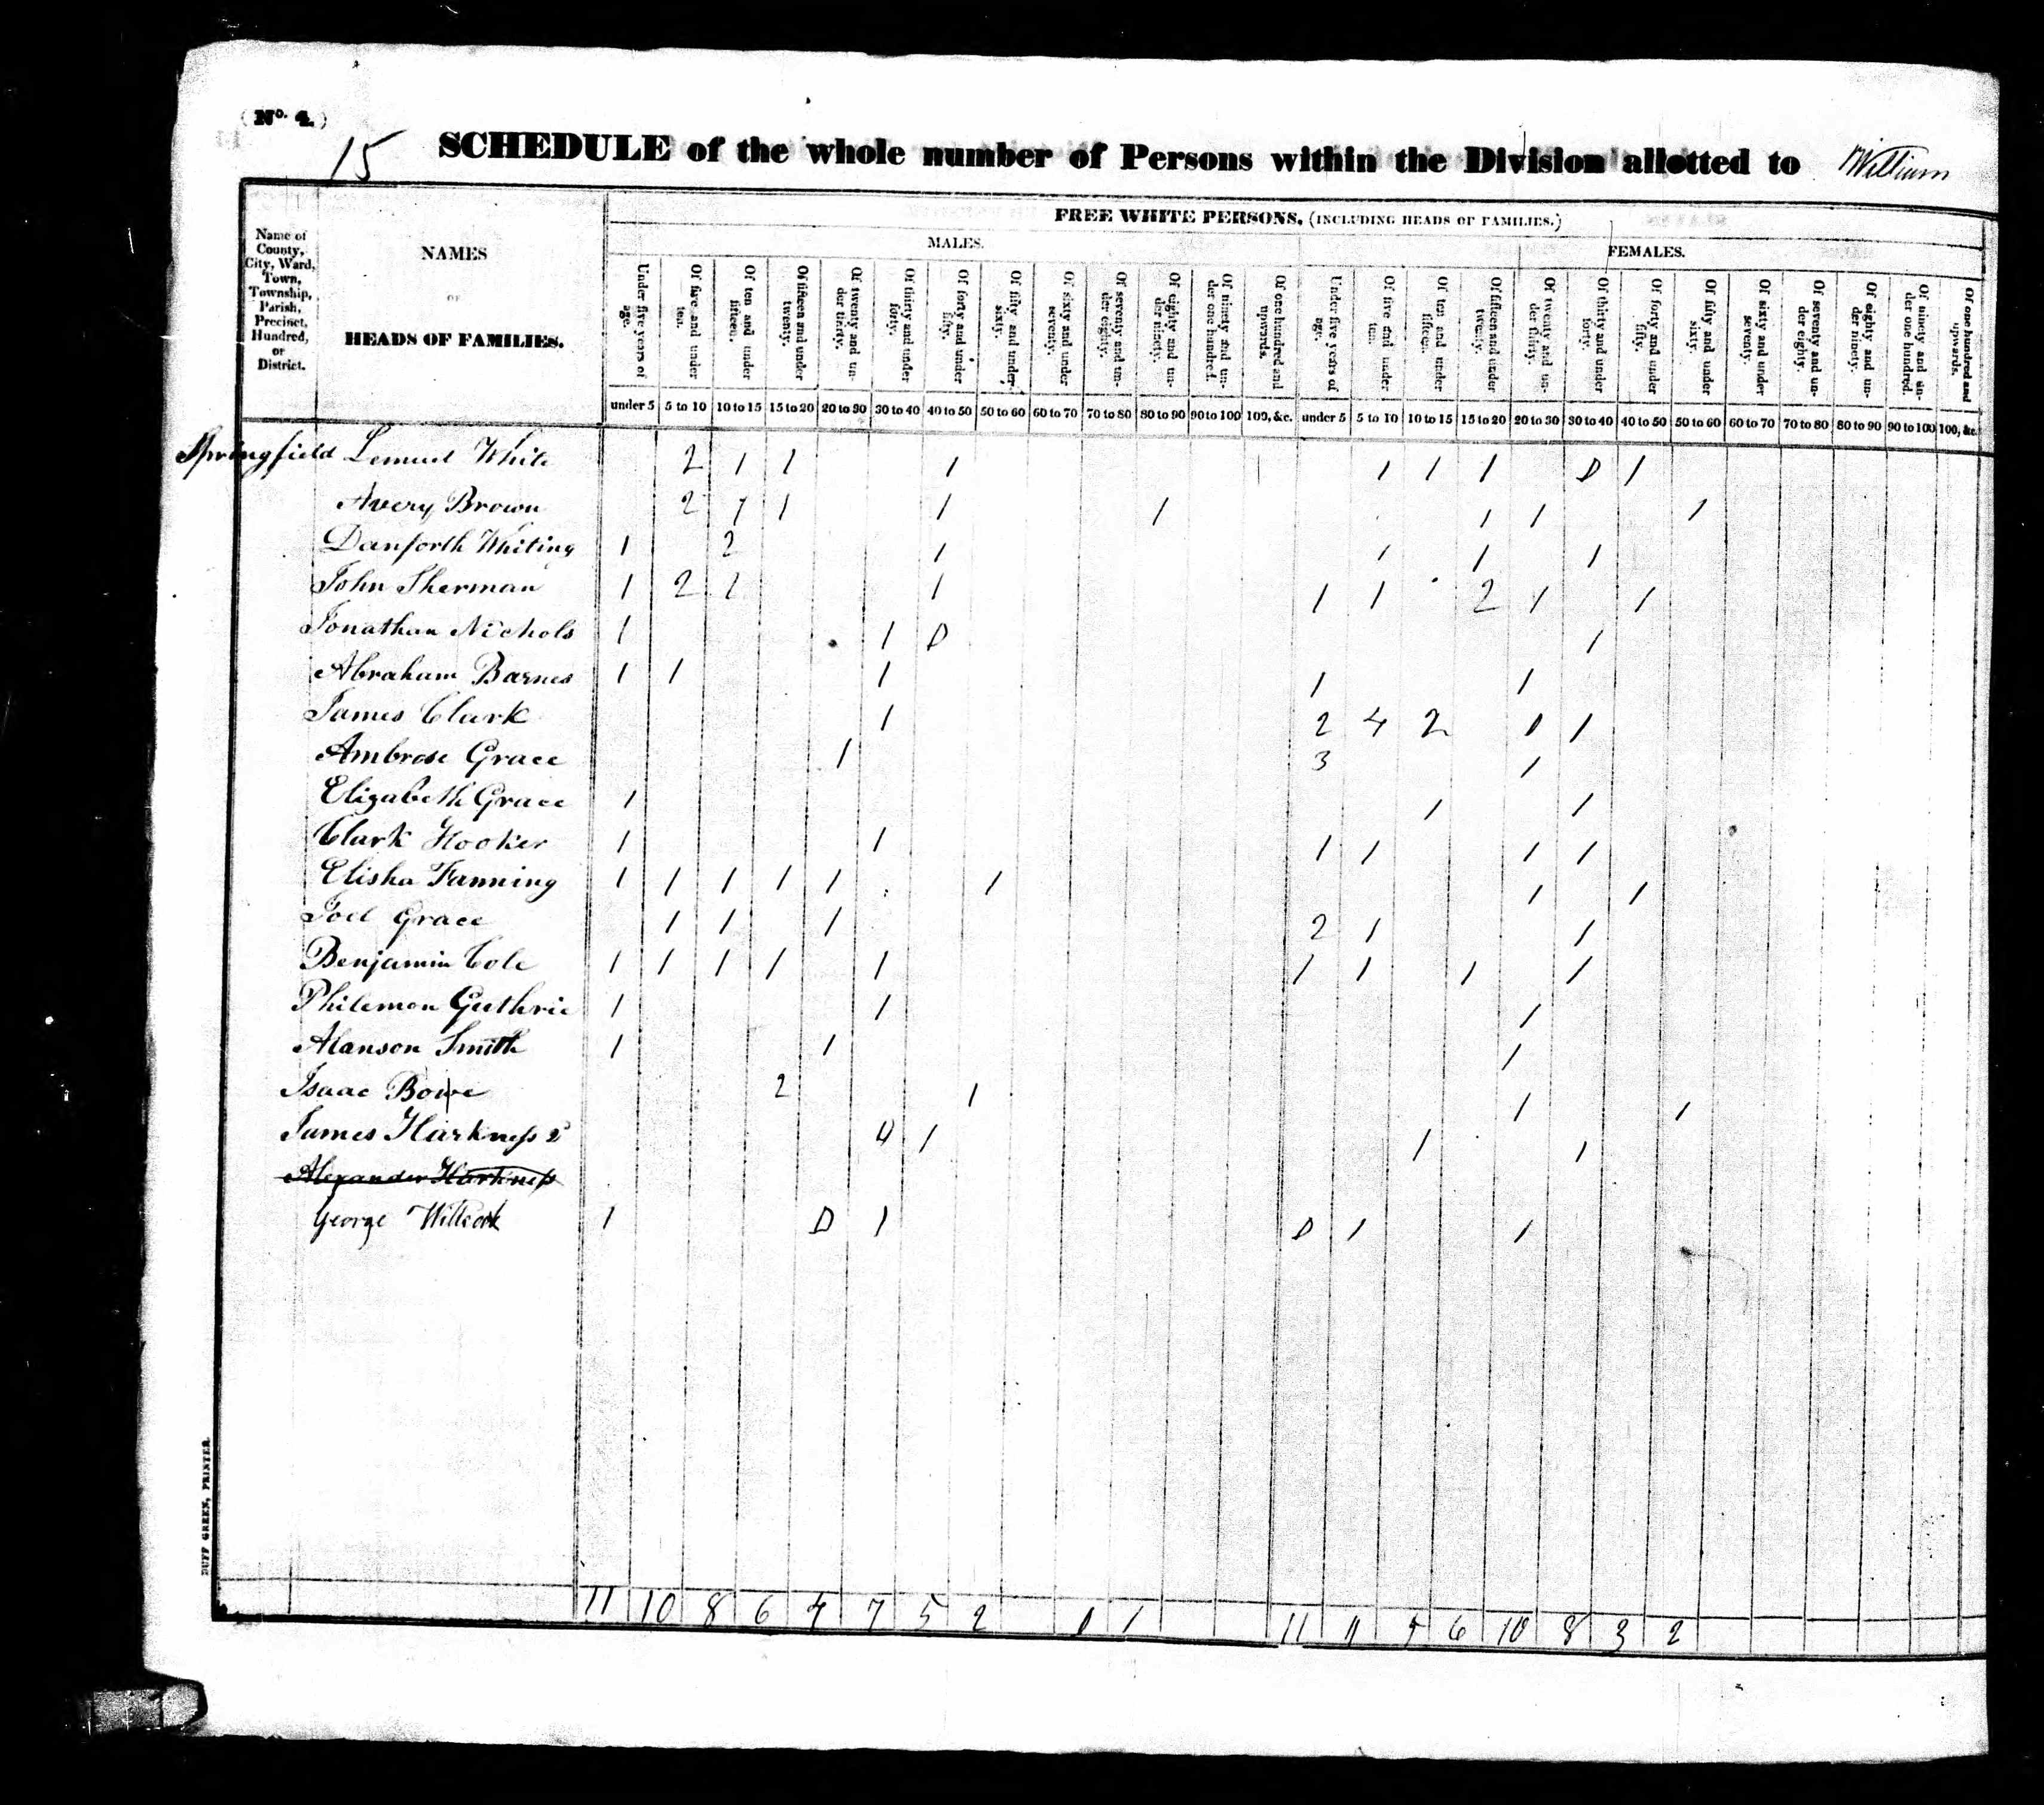 (No. 4.)
15 SCHEDULE of the whole number of Persons within the Division allotted to William
Name of County, City, Ward, Town, Township, Parish, Precinct, Hundred, or District.
NAMES
OF
HEADS OF FAMILIES.
FREE WHITE PERSONS, (INCLUDING HEADS OF FAMILIES.)
MALES. FEMALES.
Under five years of age. Of five and under ten. Of ten and under fifteen. Of fifteen and under twenty. Of twenty and under thirty. Of thirty and under forty. Of forty and under fifty. Of fifty and under sixty. Of sixty and under seventy. Of seventy and under eighty. Of eighty and under ninety. Of ninety and under one hundred. Of one hundred and upwards. Under five years of age. Of five and under ten. Of ten and under fifteen. Of fifteen and under twenty. Of twenty and under thirty. Of thirty and under forty. Of forty and under fifty. Of fifty and under sixty. Of sixty and under seventy. Of seventy and under eighty. Of eighty and under ninety. Of ninety and under one hundred. Of one hundred and upwards.
under 5 5 to 10 10 to 15 15 to 20 20 to 30 30 to 40 40 to 50 50 to 60 60 to 70 70 to 80 80 to 90 90 to 100 100, &c. under 5 5 to 10 10 to 15 15 to 20 20 to 30 30 to 40 40 to 50 50 to 60 60 to 70 70 to 80 80 to 90 90 to 100 100, &c.
Springfield Lemuel White 2 1 1 1 1 1 1 0 1
Avery Brown 2 1 1 1 1 1 1 1
Danforth Whiting 1 2 1 1 1 1
John Sherman 1 2 1 1 1 1 2 1 1
Jonathan Nichols 1 1 0 1
Abraham Barnes 1 1 1 1 1
James Clark 1 2 4 2 1 1
Ambrose Grace 1 3 1
Elizabeth Grace 1 1 1
Clark Hooker 1 1 1 1 1 1
Elisha Fanning 1 1 1 1 1 1 1 1
Joel Grace 1 1 1 2 1 1
Benjamin Cole 1 1 1 1 1 1 1 1 1
Philemon Guthrie 1 1 1
Alanson Smith 1 1 1
Isaac Bowe 2 1 1 1
James Harkness 2d 1 1 1
Alexander Harkness
George Willcox 1 0 1 0 1 1
11 10 8 6 4 7 5 2 1 11 11 5 6 10 8 3 2
DUFF GREEN, PRINTER.